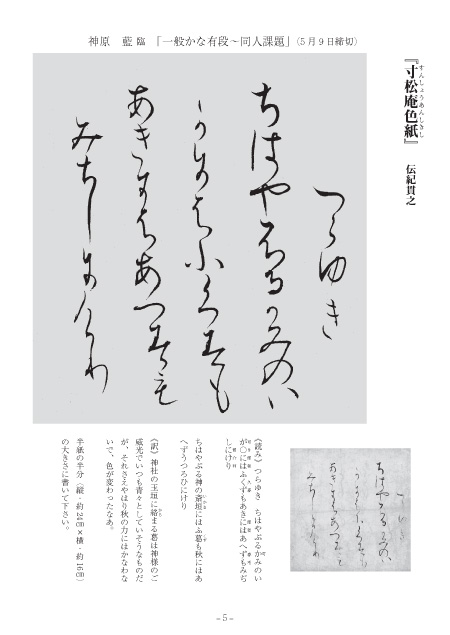 神原　藍 臨 「一般かな有段～同人課題」（5月9日締切）
『寸松庵色紙』 伝紀貫之
すんしょうあんしきし
つらゆき
ちはやふるかみのい
かきにはふくすも
あきにはあへすも
みちしにけり
《読み》つらゆき　ちはやぶるかみのい
が〇にはふくずもあきにはあへずもみぢ
しにけり
ちはやぶる神の斎垣にはふ葛も秋にはあ
へずうつろひにけり
《訳》神社の玉垣に絡まる葛は神様のご
威光でいつも青々としていそうなものだ
が、それさえやはり秋の力にはかなわな
いで、色が変わったなあ。
半紙の半分（縦・約24㎝×横・約16㎝）
の大きさに書いて下さい。
～5～